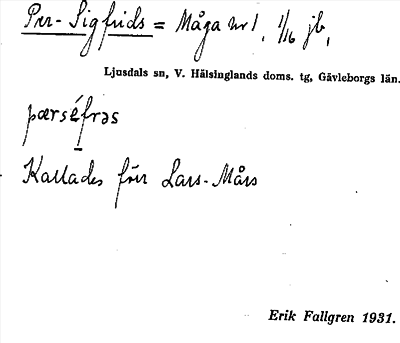 Per-Sigfrids = Måga nr 1, 1/16 jb,
Ljusdals sn, V. Hälsinglands doms. tg, Gävleborgs län.
pærséfrəs
Kallades förr Lars-Mårs
Erik Fallgren 1931.